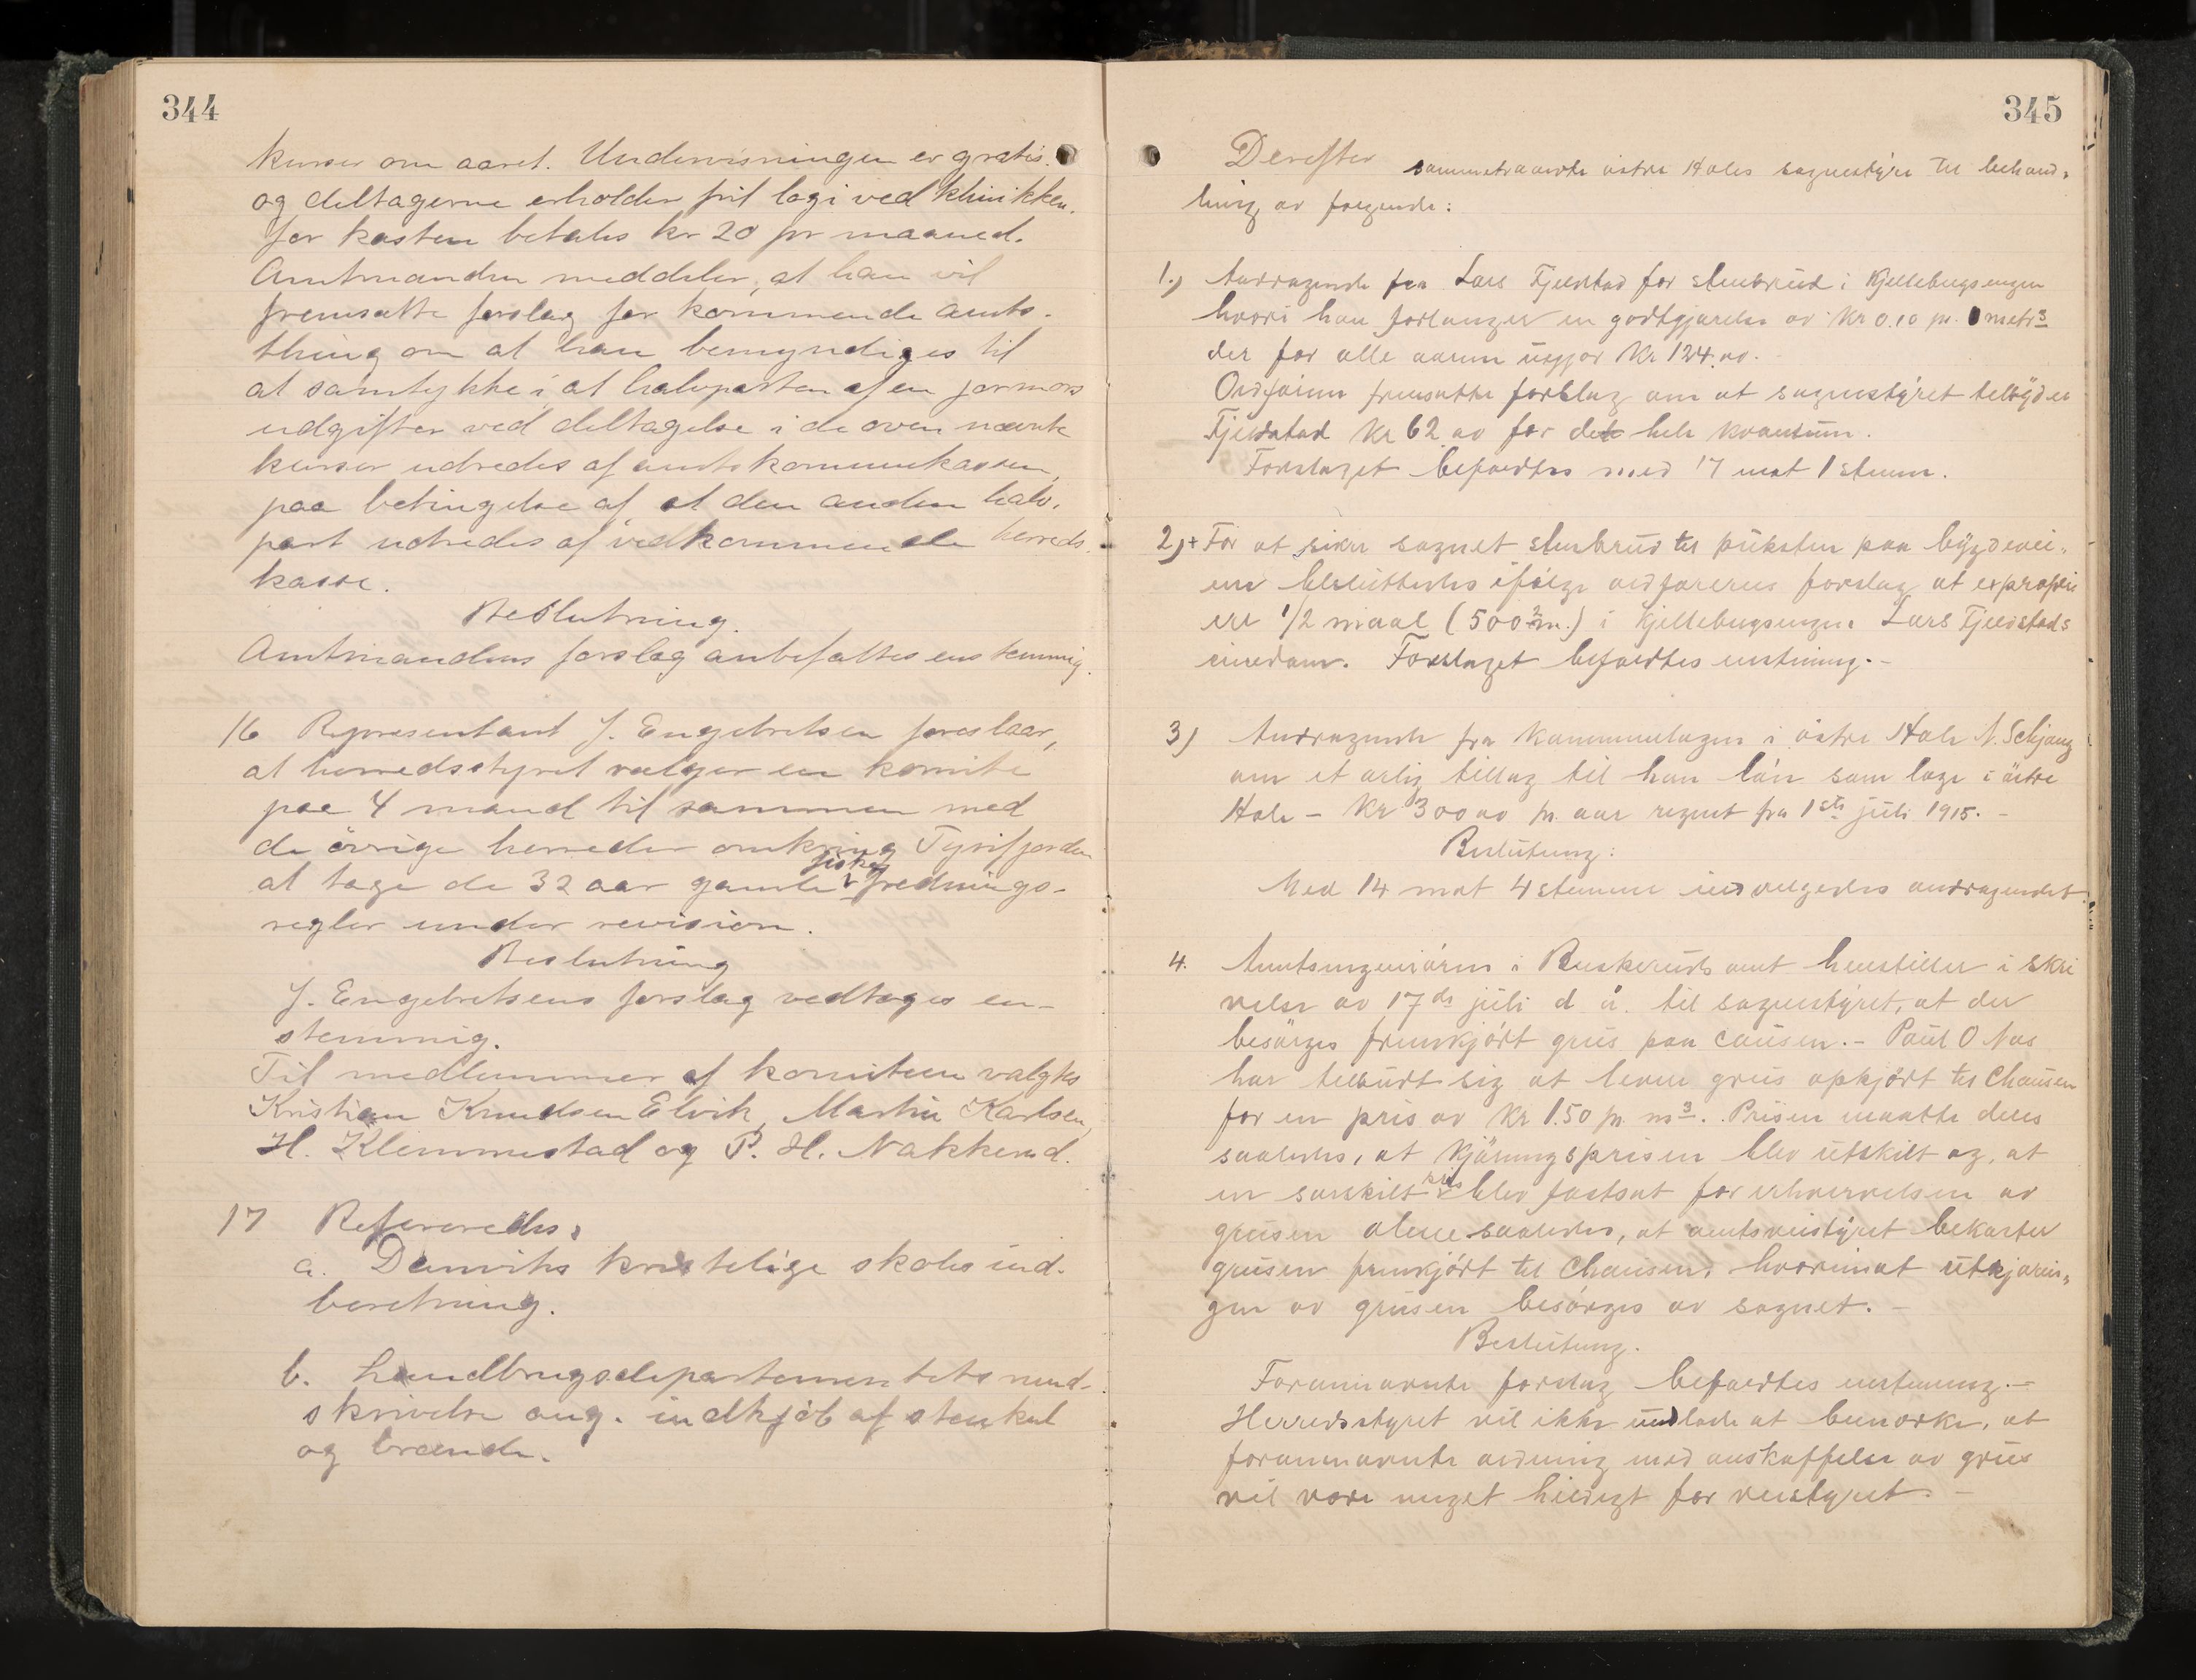 344
kurser om aaret. Undervisningen er gratis.
og deltagerne erholder frit logi ved klinikken.
for kosten betales kr 20 pr maaned.
Amtmanden meddeler, at han vil
fremsætte forslag for kommende amts-
thing om at han bemyndiges til
at samtykke i at halvparten af en jormors
udgifter ved deltagelse i de oven nævnte
kurser udredes af amtskommunekassen,
paa betingelse af at den anden halv-
part udredes af vedkommende herreds-
kasse.
Beslutning.
Amtmandens forslag anbefaltes enstemmig.
16 Representant J. Engebretsen foreslaar,
at herredsstyret vælger en komite
paa 4 mand til sammen med
de øvrige herreder omkring Tyrifjorden
at tage de 32 aar gamle fiske frednings-
regler under revision.
Beslutning
J. Engebretsens forslag vedtages en-
stemmig.
Til medlemmer af komiteen valgtes
Kristian Knudsen Elvik, Martin Karlsen,
H. Klemmestad og P. H. Nakkerud.
17 Refereredes:
a. Danviks kristelige skoles ind-
beretning.
b. Landbrugsdepartementets rund-
skrivelse ang. indkjøb af stenkul
og brænde.
345
Derefter sammentraadte østre Holes sognestyre til behand-
ling av følgende:
1.) Andragende fra Lars Fjeldstad for stenbrud i Kjellebugsengen
hvori han forlanger en godtgjørelse av Kr 0.10 pr. metr3
der for alle aarene utgjør Kr 124.00.
Ordføren fremsatte forslag om at sognestyret tilbyder
Fjeldstad Kr 62.00 for det hele kvantum.
Forslaget bifaldtes med 17 mot 1 stemm.
2)+ For at sikre sognet stenbrud til puksten paa bygdevei-
ene besluttedes ifølge ordførerens forslag at expropri
ere 1/2 maal (500 m2.) i Kjellebugsengen Lars Fjeldstads
eiendom. Forslaget bifaldtes enstemmig.-
3) Andragende fra Kommunelægen i østre Hole N. Schjang
om et årlig tillæg til hans løn som læge i østre
Hole - Kr 300.00 pr. aar regnet fra 1ste juli 1915. -
Beslutning:
Med 14 mot 4 stemmer imøtekom andragendet.
4. Amtsingeniøren i Buskeruds amt henstiller i skri
velse av 17de juli d. å. til sognestyret, at der
besørges fremkjørt grus paa causen.- Paul O Næs
har tilbudt sig at levere grus opkjørt til Chausen
for en pris av Kr 1.50 pr. m3.. Prisen maatte deles
saaledes, at kjøringsprisen blev utskilt og, at
en særskilt pris blev fastsat for erhvervelsen av
grusen alene saaledes, at amtsveistyret bekoster
grusen fremkjørt til Chausen, hvorimot utkjørin-
gen av grusen besørges av sognet.-
Beslutning.
Forannævnte forslag bifaldtes enstemmig.-
Herredsstyret vil ikke undlade at bemerke, at
forannævnte ordning med anskaffelse av grus
vil være meget heldigt for veistyret.-